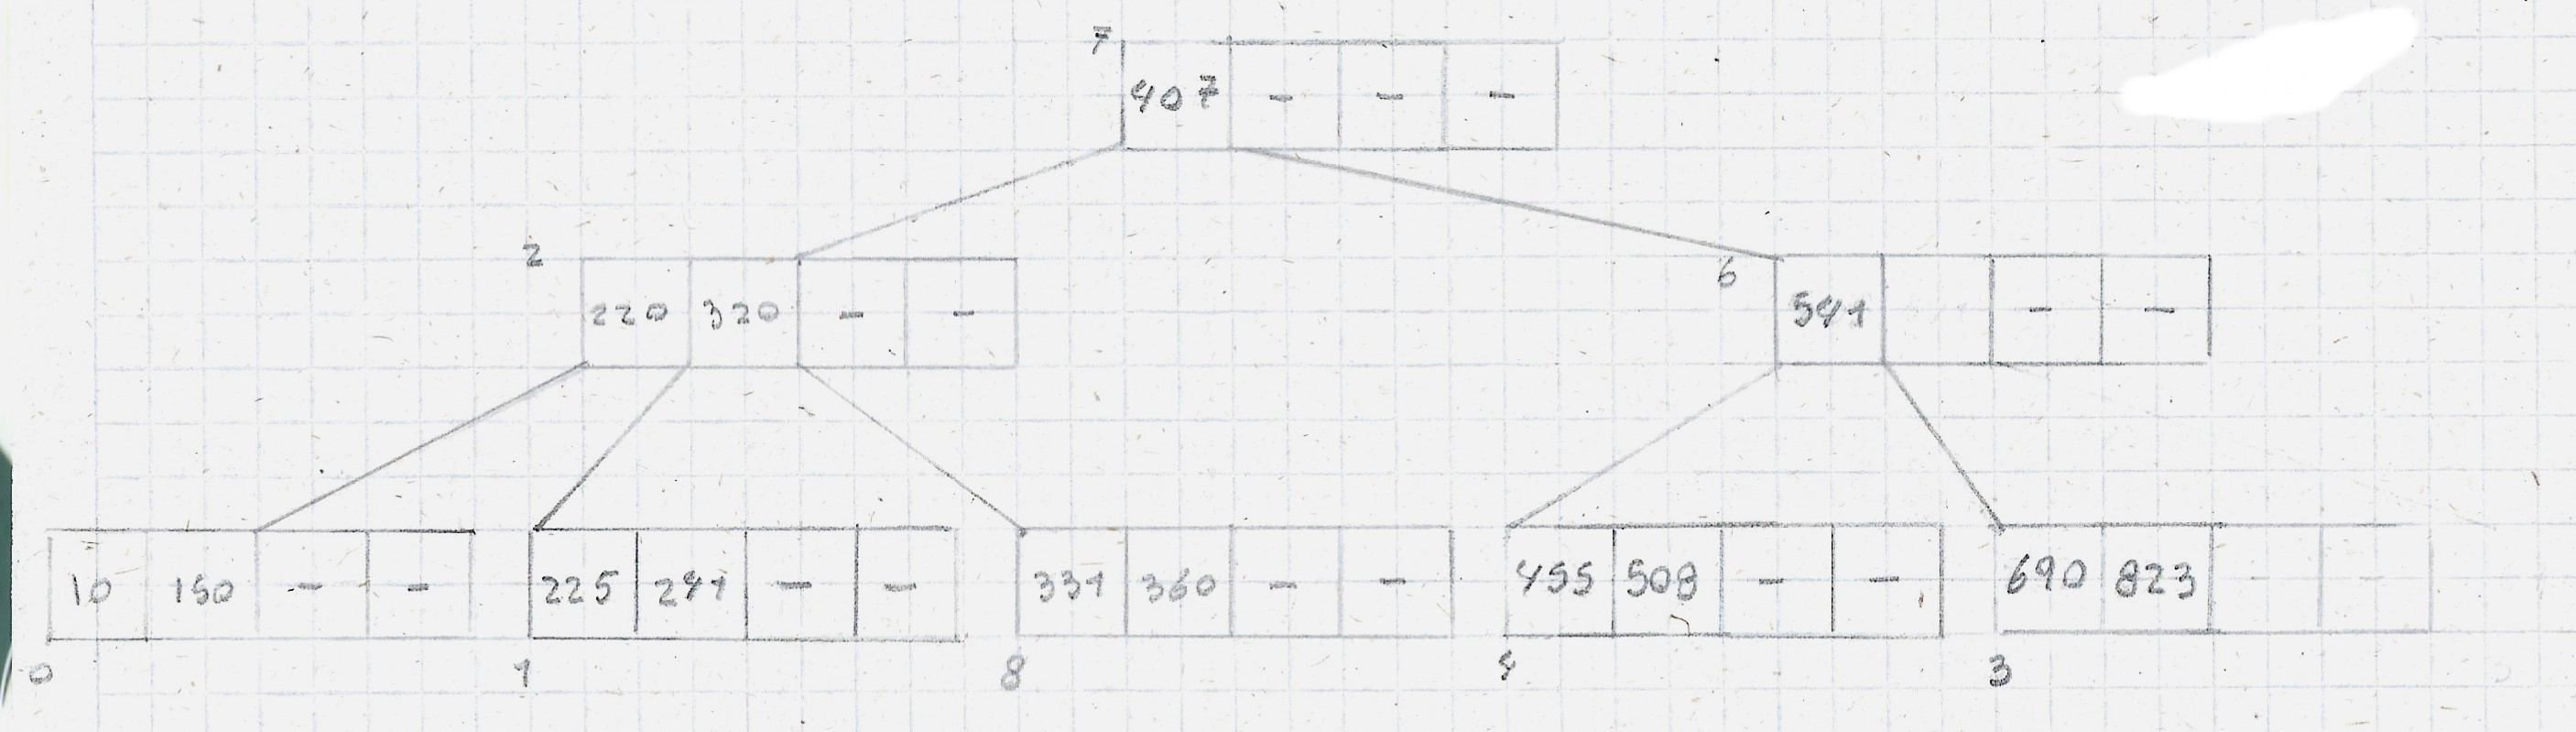 7
407 - - -
2
220 320 - -
6
541 - -
10 150 - -
225 241 - -
331 360 - -
455 508 - -
690 823 - -
0 1 8 4 3